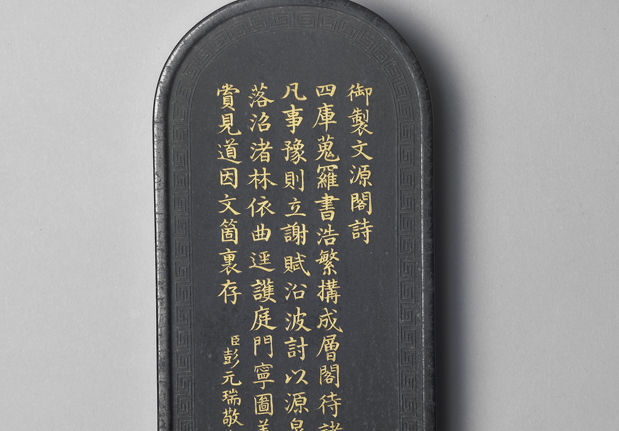 御製文源閣詩
四庫蒐羅書浩繁構成層閣待諸
凡事豫則立謝賦沿波討以源泉
落沼渚林依曲逕護庭門寧圖美
賞見道因文箇裏存
臣彭元瑞敬